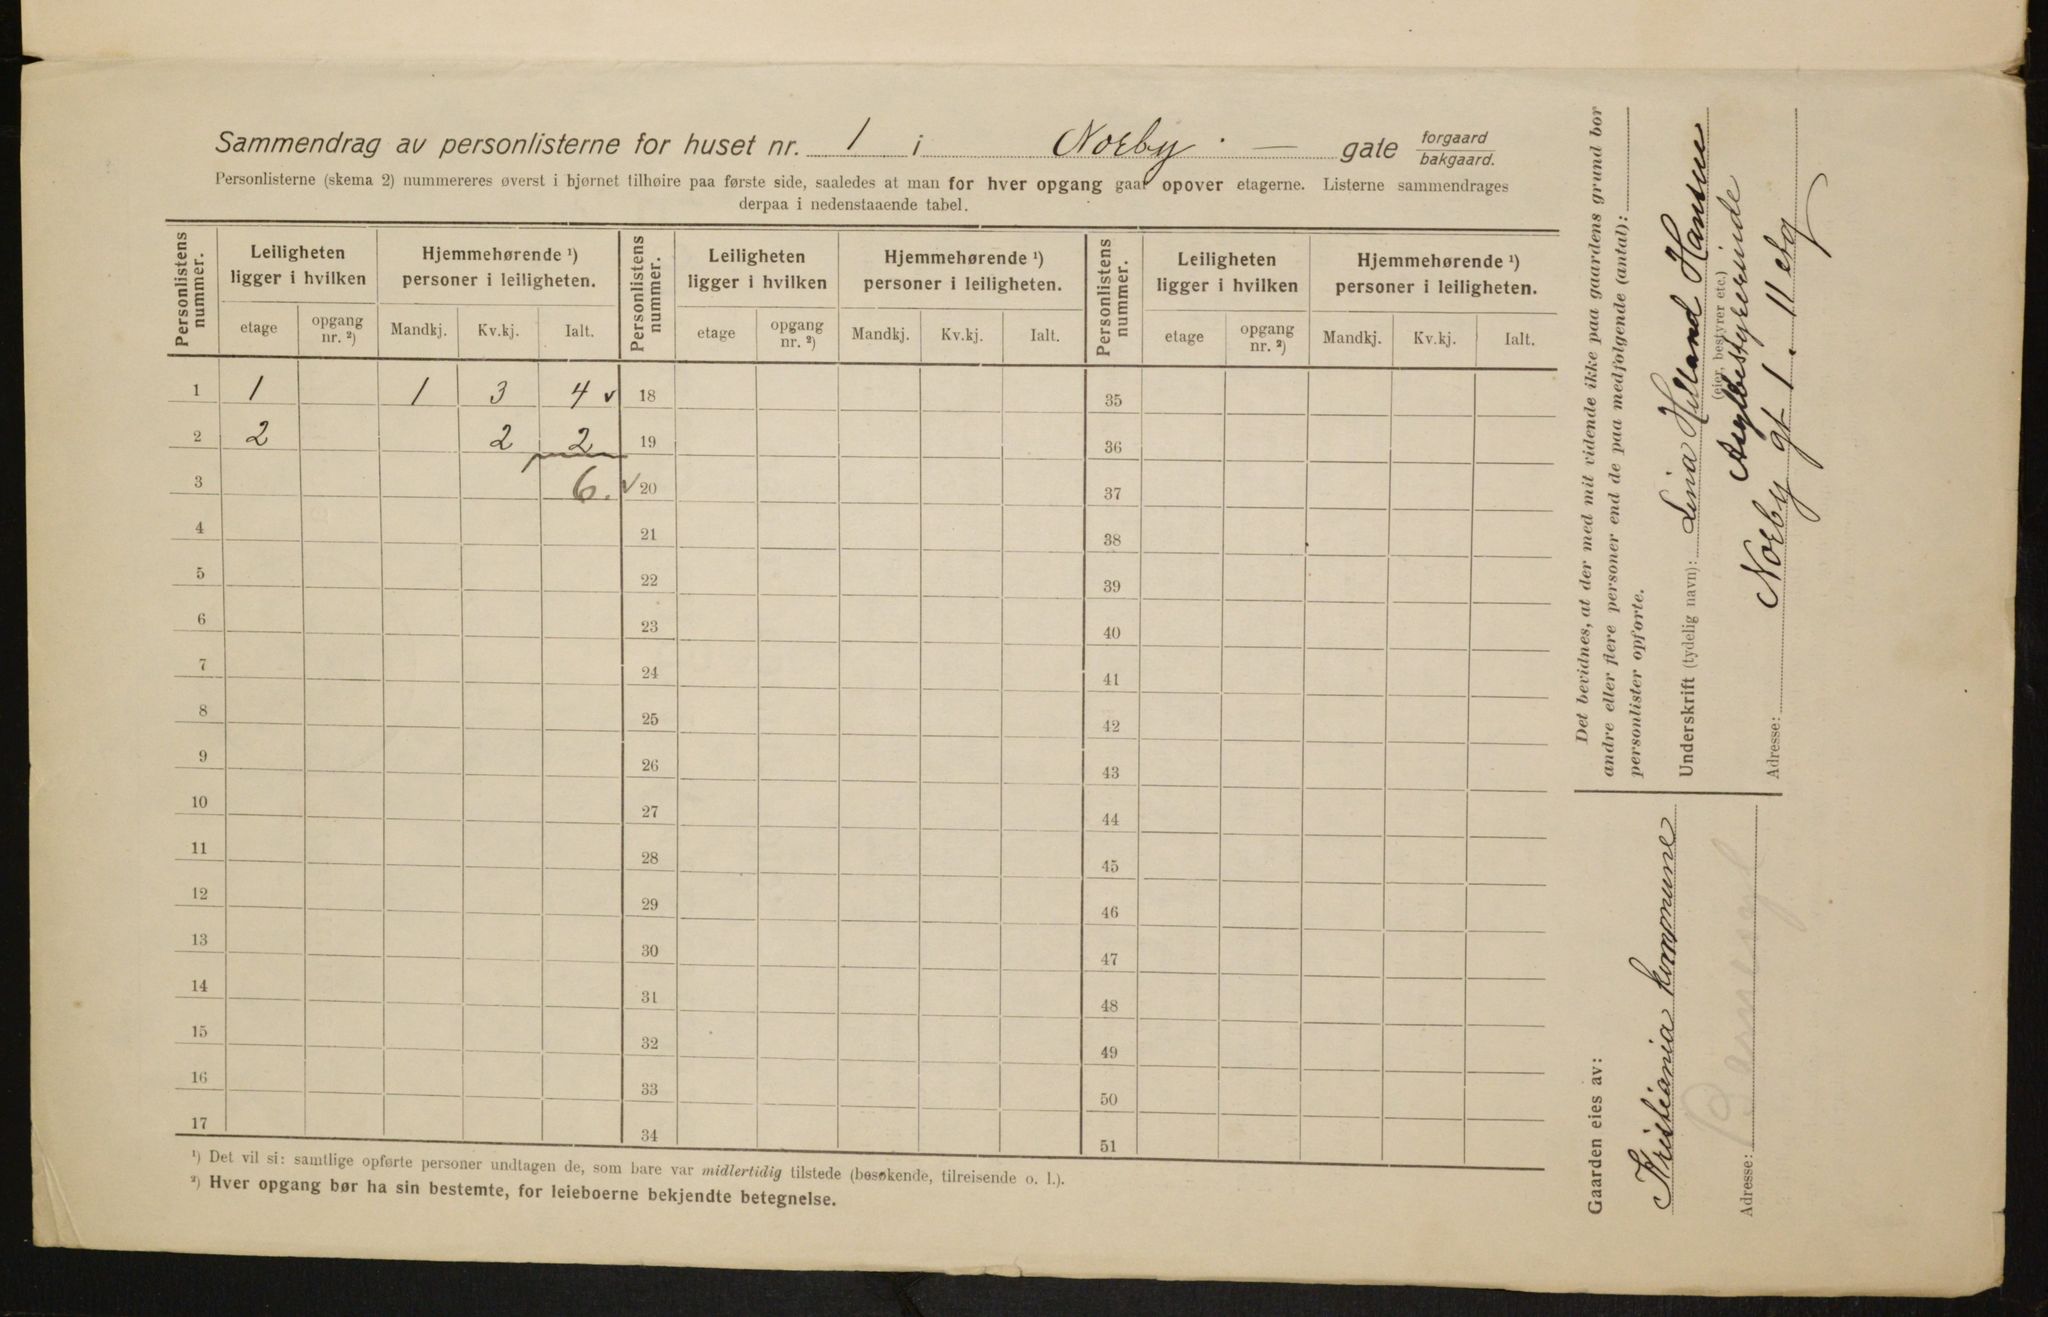 Sammendrag av personlisterne for huset nr. 1 i Norby - gate forgaard bakgaard.
Personlisterne (skema 2) nummereres øverst i hjørnet tilhøire paa første side, saaledes at man for hver opgang gaar opover etagerne. Listerne sammendrages
derpaa i nedenstaaende tabel.
Personlistens nummer. Leiligheten ligger i hvilken Hjemmehørende ¹) personer i leiligheten. Personlistens nummer. Leiligheten ligger i hvilken Hjemmehørende ¹) personer i leiligheten. Personlistens nummer. Leiligheten ligger i hvilken Hjemmehørende ¹) personer i leiligheten.
etage opgang nr. ²) Mandkj. Kv.kj. Ialt. etage opgang nr. ²) Mandkj. Kv.kj. Ialt. etage opgang nr. ²) Mandkj. Kv.kj. Ialt.
1 1 1 3 4 ✓ 18 35
2 2 2 2 19 36
3 6. ✓ 20 37
4 21 38
5 22 39
6 23 40
7 24 41
8 25 42
9 26 43
10 27 44
11 28 45
12 29 46
13 30 47
14 31 48
15 32 49
16 33 50
17 34 51
¹) Det vil si: samtlige opførte personer undtagen de, som bare var midlertidig tilstede (besøkende, tilreisende o. l.).
²) Hver opgang bør ha sin bestemte, for leieboerne bekjendte betegnelse.
Det bevidnes, at der med mit vidende ikke paa gaardens grund bor
andre eller flere personer end de paa medfølgende (antal):
personlister opførte.
Underskrift (tydelig navn): Lina Helland Hansen
(eier, bestyrer etc.)
Asylbestyrerinde
Adresse: Norby gt 1. II etg
Gaarden eies av:
Kristiania kommune
Adresse: